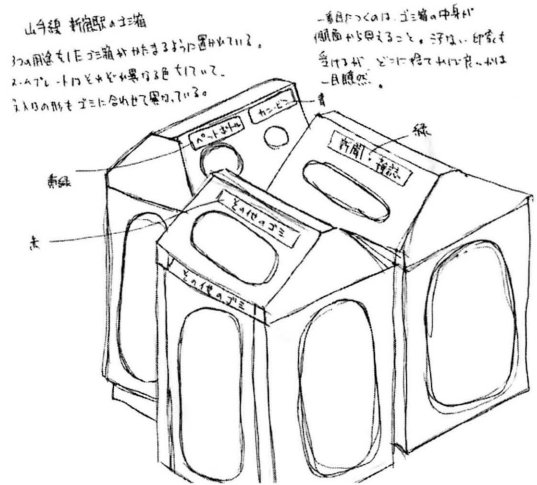 山手線 新宿駅のゴミ箱
3つの用途をもしたゴミ箱がかたまるように置かれている。
ネームプレートはそれぞれ異なる色をしていて、
入口の形もゴミに合わせて異なっている。
一番目につくのは、ゴミ箱の中身が
側面から見えること。汚ない印象も
受けるが、どこに捨てれば良いかは
一目瞭然。
青
ペットボトル
カン・ビン
緑
新聞・雑誌
黄緑
赤
その他のゴミ
その他のゴミ